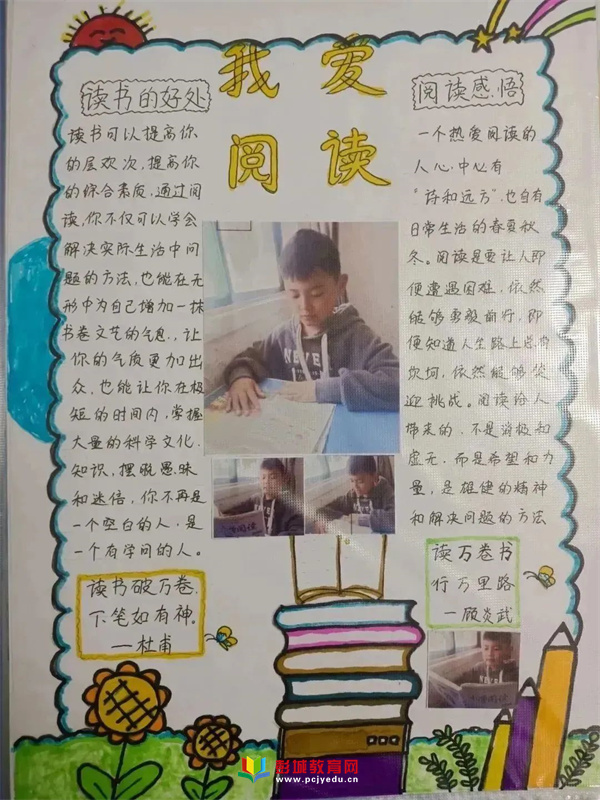 我爱
阅读
读书的好处
读书可以提高你
的层欢次,提高你
的综合素质,通过阅
读,你不仅可以学会
解决实际生活中问
题的方法,也能在无
形中为自己增加一抹
书卷文艺的气息,让
你的气质更加出
众,也能让你在极
短的时间内,掌握
大量的科学文化
知识,摆脱愚昧
和迷信,你不再是
一个空白的人,是
一个有学问的人。
读书破万卷,
下笔如有神。
—杜甫
阅读感悟
一个热爱阅读的
人心中心有
“诗和远方”也自有
日常生活的春夏秋
冬。阅读是要让人即
便遭遇困难,依然
能够勇毅前行,即
便知道人生路上总有
坎坷,依然能够笑
迎挑战。阅读给人
带来的,不是消极和
虚无,而是希望和力
量,是雄健的精神
和解决问题的方法
读万卷书
行万里路
—顾炎武
NEVER
彭城教育网
www.pcjyedu.cn